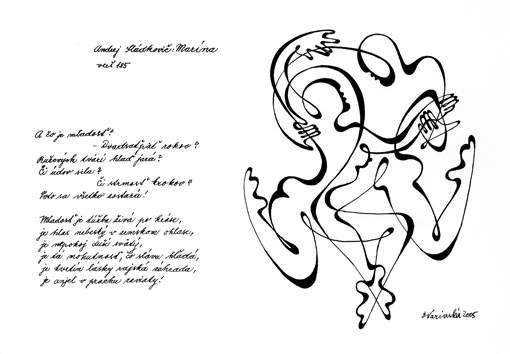 Andrej Sládkovič: Marína
verš 185
A čo je mladosť? 
- Dvadsaťpäť rokov?
Ružových tvárí hlaď jará?
Či údov sila?
Či strmosť krokov?
Toto sa všetko zostará!
Mladosť je túžba živá po kráse,
je hlas nebeský v zemskom ohlase,
je nepokoj duší svätý,
je tá mohutnosť, čo slávu hľadá,
je kvetín lásky rajská záhrada,
je anjel v prachu zaviaty!
2005